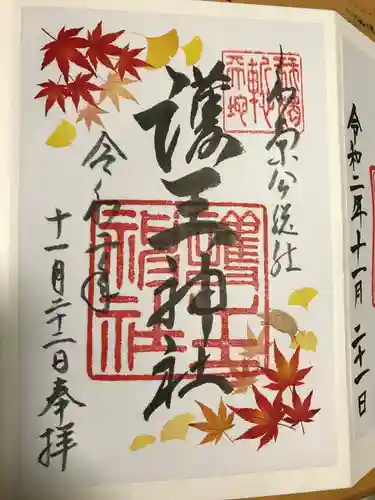 令和二年十一月二十一日
護王神社
護王
神社
令和二年
十一月二十二日奉拝